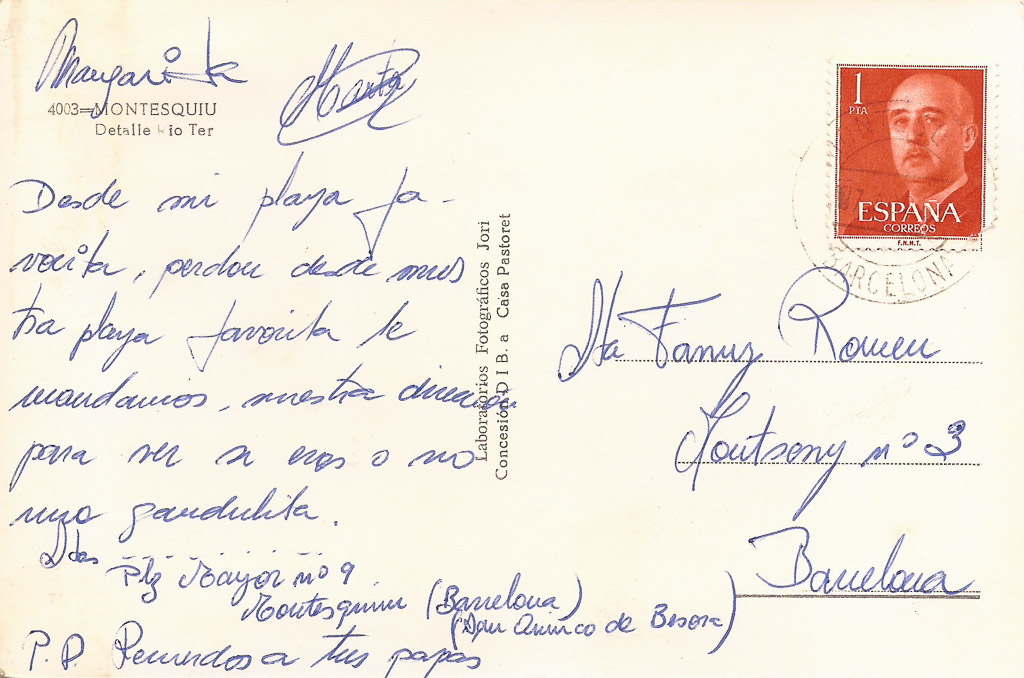 Margarita
Marta
4003=MONTESQUIU
Detalle Rio Ter
Desde mi playa fa-
vorita, perdon desde nues
tra playa favorita te
mandamos, nuestra direccion
para ver si eres o no
una gandulita.
Stas
Plz Mayor nº 9.
Montesquiu (Barcelona)
(San Quirico de Besora)
P.D. Recuerdos a tus papas
Laboratorios Fotográficos Jori
Concesión D I B. a Casa Pastoret
1
PTA
ESPAÑA
CORREOS
F.N.M.T.
BARCELONA
Sta Fanny Romeu
Montseny nº 3
Barcelona